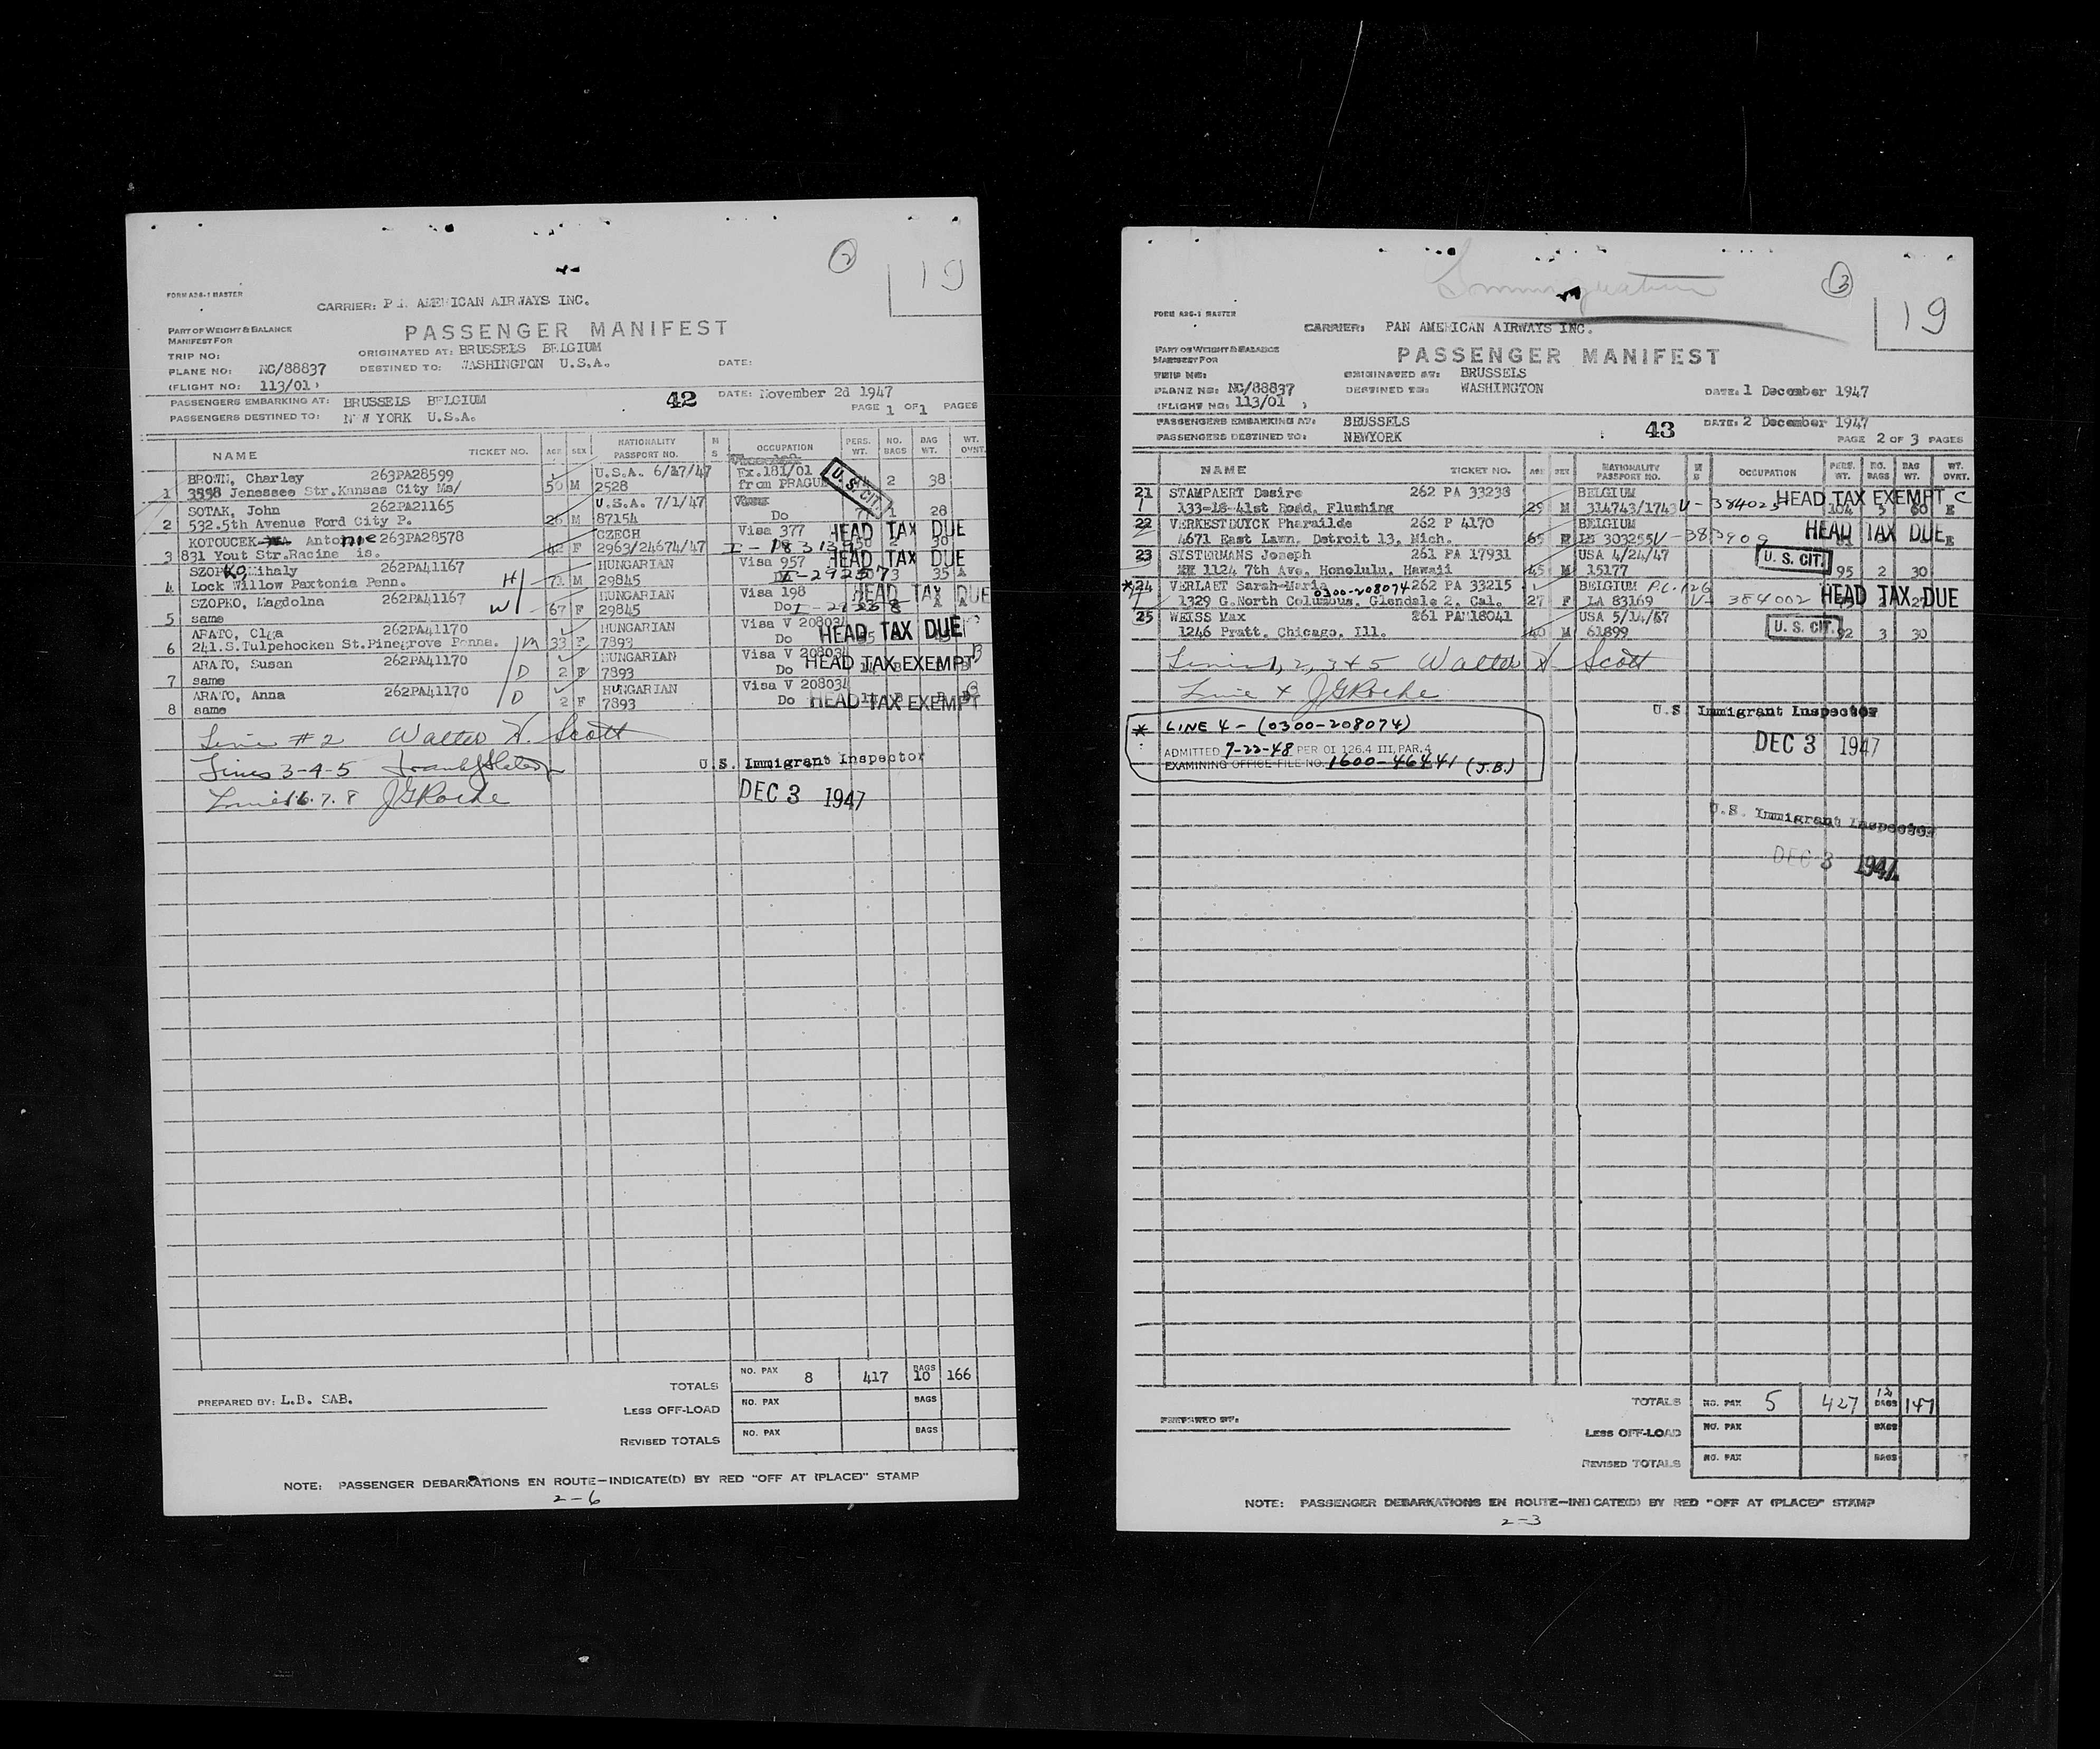 2
19
FORM A26-1 MASTER
CARRIER: P AMERICAN AIRWAYS INC.
PASSENGER MANIFEST
PART OF WEIGHT & BALANCE
MANIFEST FOR
TRIP NO:
ORIGINATED AT: BRUSSELS BELGIUM
PLANE NO: NC/88837 DESTINED TO: WASHINGTON U.S.A. DATE:
(FLIGHT NO: 113/01)
PASSENGERS EMBARKING AT: BRUSSELS BELGIUM 42 DATE: November 2d 1947
PASSENGERS DESTINED TO: N W YORK U.S.A. PAGE 1 OF 1 PAGES
NAME TICKET NO. AGE SEX NATIONALITY PASSPORT NO. M S OCCUPATION PERS. WT. NO. BAGS BAG WT. WT. OVNT.
BROWN, Charley 263PA28599 U.S.A. 6/17/47 Ex.181/01 U. S. CIT.
1 3558 Jenessee Str.Kansas City Ms/ 50 M 2528 from PRAGUE 2 38
SOTAK, John 262PA21165 U.S.A. 7/1/47
2 532.5th Avenue Ford City P. 26 M 87154 Do 1 28
KOTOUCEK Antonie 263PA28578 CZECH Visa 377 HEAD TAX DUE
3 831 Yout Str.Racine is. 42 F 2963/24674/47 I-183139 30
SZOPKO, Mihaly 262PA41167 HUNGARIAN Visa 957 HEAD TAX DUE
4 Lock Willow Paxtonia Penn. H/ 71 M 29845 35 A
SZOPKO, Magdolna 262PA41167 HUNGARIAN Visa 198 HEAD TAX DUE
5 same W/ 67 F 29845 Do
ARATO, Olga 262PA41170 HUNGARIAN Visa V 208034
6 241.S.Tulpehocken St.Pinegrove Penna. /M 33 F 7893 Do HEAD TAX DUE
ARATO, Susan 262PA41170 HUNGARIAN Visa V 208034
7 same /D 2 F 7893 Do HEAD TAX EXEMPT
ARATO, Anna 262PA41170 HUNGARIAN Visa V 208034
8 same /D 2 F 7893 Do HEAD TAX EXEMPT
Line #2 Walter H. Scott
Lines 3-4-5
U.S. Immigrant Inspector
6.7.8 J G Roche
DEC 3 1947
TOTALS NO. PAX 8 417 BAGS 10 166
PREPARED BY: L.B. SAB.
LESS OFF-LOAD NO. PAX BAGS
REVISED TOTALS NO. PAX BAGS
NOTE: PASSENGER DEBARKATIONS EN ROUTE-INDICATE(D) BY RED "OFF AT (PLACE)" STAMP
2-6
Immigration
3
19
FORM A26-1 MASTER
CARRIER: PAN AMERICAN AIRWAYS INC.
PASSENGER MANIFEST
PART OF WEIGHT & BALANCE
MANIFEST FOR
TRIP NO: ORIGINATED AT: BRUSSELS
PLANE NO: NC/88837 DESTINED TO: WASHINGTON DATE: 1 December 1947
(FLIGHT NO: 113/01 )
PASSENGERS EMBARKING AT: BRUSSELS 43 DATE: 2 December 1947
PASSENGERS DESTINED TO: NEWYORK PAGE 2 OF 3 PAGES
NAME TICKET NO. AGE SEX NATIONALITY PASSPORT NO. M S OCCUPATION PERS. WT. NO. BAGS BAG WT. WT. OVRT.
21 STAMPAERT Desire 262 PA 33238 BELGIUM HEAD TAX EXEMPT C
133-18-41st Road, Flushing 29 M 314743/1743 V-384025 104 5 60 E
22 VERKESTDUYCK Pharailde 262 P 4170 BELGIUM HEAD TAX DUE
4671 East Lawn, Detroit 13, Mich. 65 F LB 303255 V-383909 E
23 SISTERMANS Joseph 261 PA 17931 USA 4/24/47 U. S. CIT.
1124 7th Ave. Honolulu, Hawaii 45 M 15177 95 2 30
*24 VERLAET Sarah-Maria 0300-208074 262 PA 33215 BELGIUM P.C.126
1329 G.North Columbus, Glendale 2, Cal. 27 F LA 83169 V-384002 HEAD TAX DUE
25 WEISS Max 261 PA 18041 USA 5/14/47 U. S. CIT.
1246 Pratt, Chicago, Ill. 40 M 61899 92 3 30
Lines 1, 2, 3 & 5 Walter H. Scott
Line 4 J G Roche
U.S Immigrant Inspector
DEC 3 1947
* LINE 4 - (0300-208074)
ADMITTED 7-22-48 PER OI 126.4 III, PAR. 4
EXAMINING OFFICE FILE NO. 1600-46441 (J.B.)
U.S. Immigrant Inspector
DEC 3 1947
TOTALS NO. PAX 5 427 12 BAGS 147
PREPARED BY:
LESS OFF-LOAD NO. PAX BAGS
REVISED TOTALS NO. PAX BAGS
NOTE: PASSENGER DEBARKATIONS EN ROUTE-INDICATE(D) BY RED "OFF AT (PLACE)" STAMP
2-3